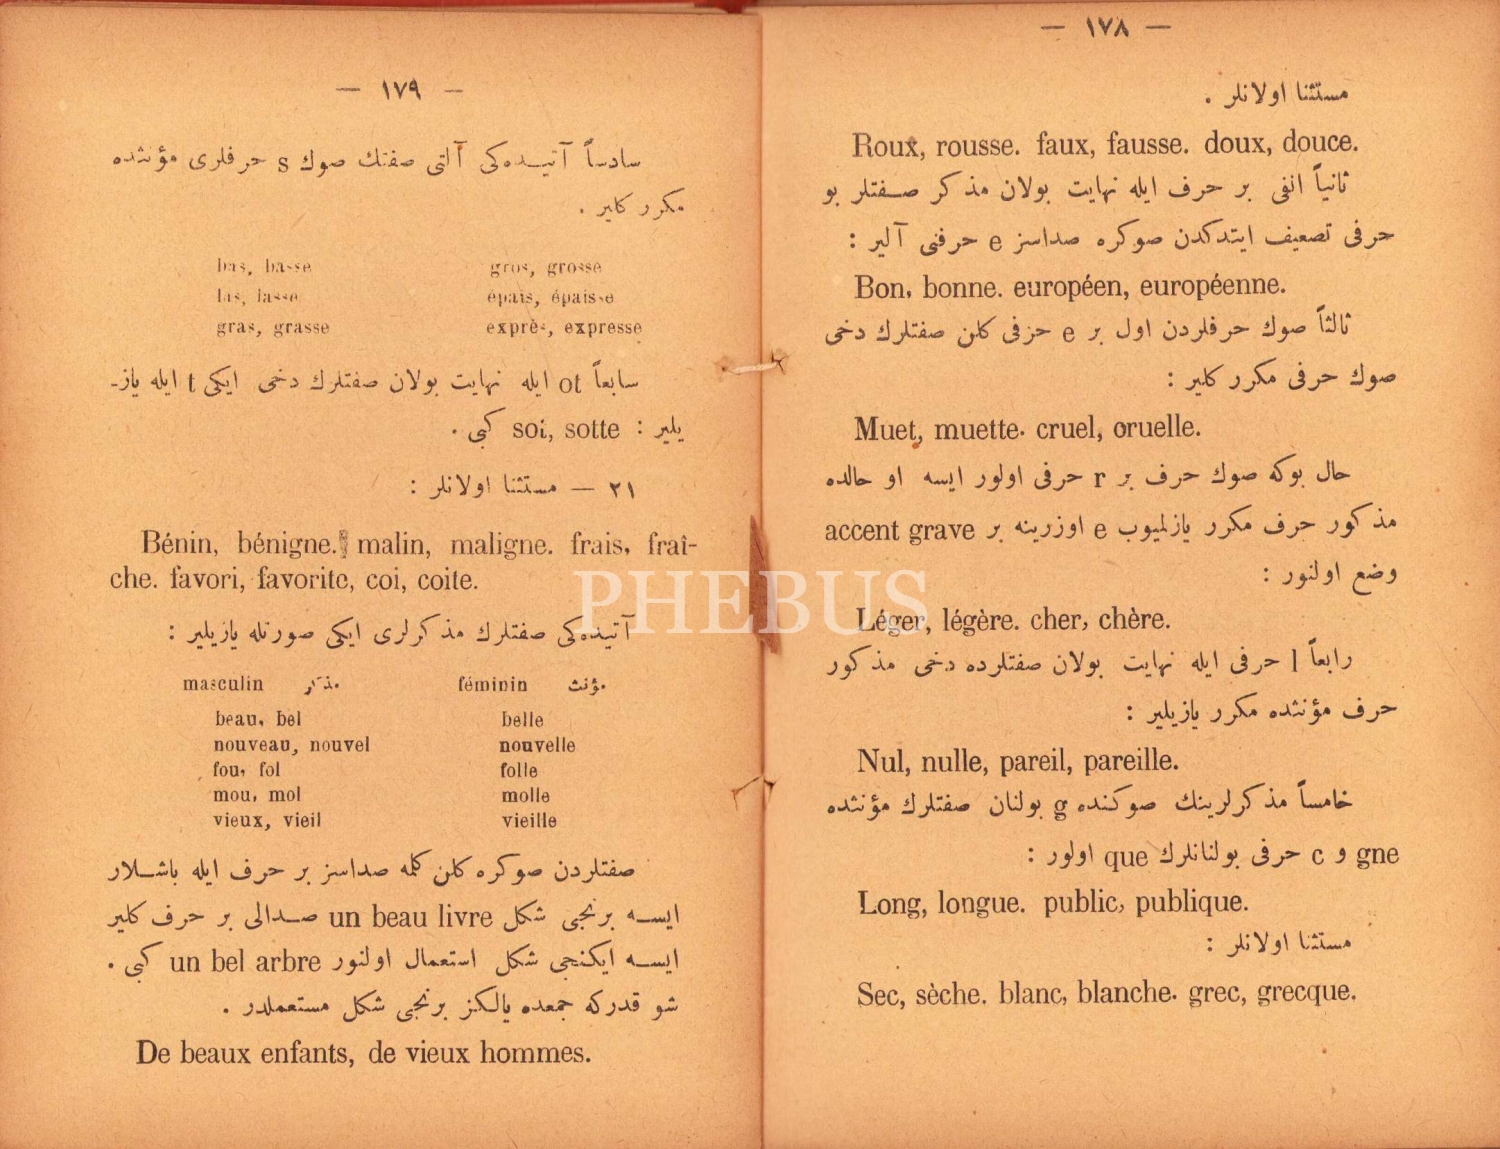 — ١٧٨ —
مستثنا اولانلر .
Roux, rousse. faux, fausse. doux, douce.
ثانیاً انفی بر حرف ایله نهایت بولان مذکر صفتلر بو
حرفی تصعیف ایتدکدن صوکره صداسز e حرفنی آلیر :
Bon, bonne. européen, européenne.
ثالثاً صوك حرفلردن اول بر e حرفی کلن صفتلرك دخی
صوك حرفی مکرر کلیر :
Muet, muette. cruel, oruelle.
حال بوکه صوك حرف بر r حرفی اولور ایسه او حالده
مذکور حرف مکرر یازلمیوب e اوزرینه بر accent grave
وضع اولنور :
Léger, légère. cher, chère.
رابعاً l حرفی ایله نهایت بولان صفتلرده دخی مذکور
حرف مؤنثده مکرر یازیلیر :
Nul, nulle, pareil, pareille.
خامساً مذکرلرینك صوکنده g بولنان صفتلرك مؤنثده
gne و c حرفی بولنانلرك que اولور :
Long, longue. public, publique.
مستثنا اولانلر :
Sec, sèche. blanc, blanche. grec, grecque.
— ١٧٩ —
سادساً آتیده‌کی آلتی صفتك صوك s حرفلری مؤنثده
مکرر کلیر .
bas, basse gros, grosse
las, lasse épais, épaisse
gras, grasse exprès, expresse
سابعاً ot ایله نهایت بولان صفتلرك دخی ایکی t ایله یاز-
یلیر : soi, sotte کبی .
٢١ — مستثنا اولانلر :
Bénin, bénigne. malin, maligne. frais, fraî-
che. favori, favorite, coi, coite.
آتیده‌کی صفتلرك مذکرلری ایکی صورتله یازیلیر :
masculin مذکر féminin مؤنث
beau, bel belle
nouveau, nouvel nouvelle
fou, fol folle
mou, mol molle
vieux, vieil vieille
صفتلردن صوکره کلن کلمه صداسز بر حرف ایله باشلار
ایسه برنجی شکل un beau livre صدالی بر حرف کلیر
ایسه ایکنجی شکل استعمال اولنور un bel arbre کبی .
شو قدرکه جمعده یالکز برنجی شکل مستعملدر .
De beaux enfants, de vieux hommes.
PHEBUS